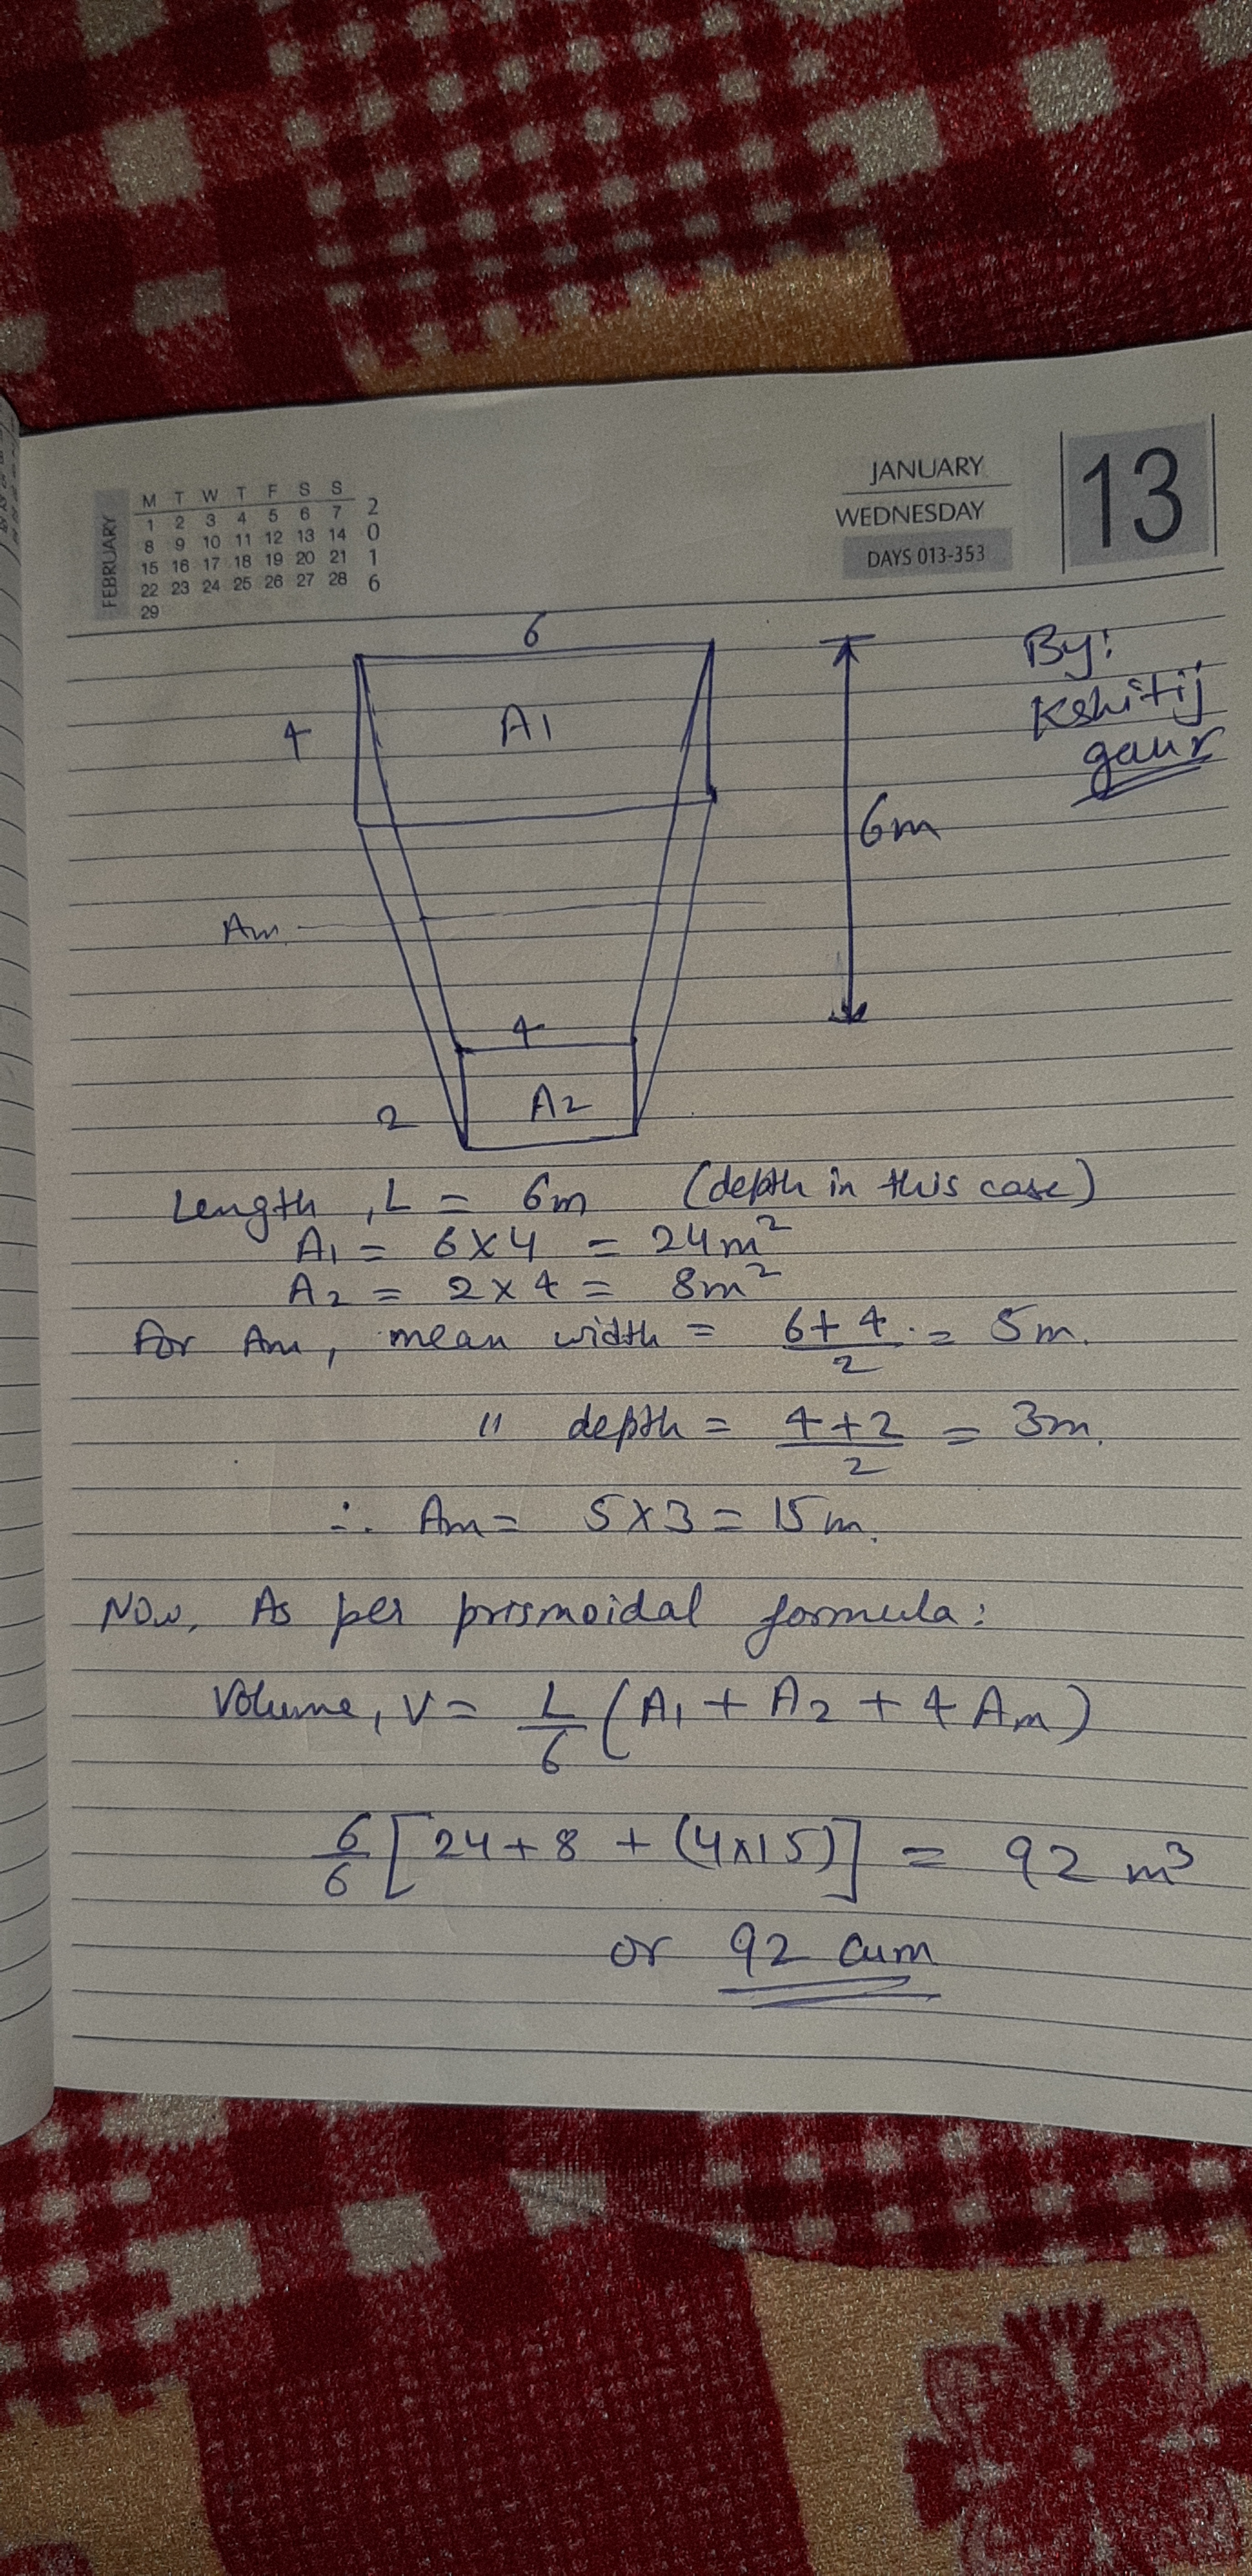 FEBRUARY
M T W T F S S
1 2 3 4 5 6 7
8 9 10 11 12 13 14
15 16 17 18 19 20 21
22 23 24 25 26 27 28
29
2
0
1
6
JANUARY
WEDNESDAY
DAYS 013-353
13
By:
Kshitij
gaur
6
4
A1
6m
Am
4
2
A2
Length, L = 6m (depth in this case)
A1 = 6×4 = 24m²
A2 = 2×4 = 8m²
For Am, mean width = (6+4)/2 = 5m.
" depth = (4+2)/2 = 3m.
∴ Am = 5×3 = 15m.
Now, As per prismoidal formula:
Volume, V = L/6 (A1 + A2 + 4 Am)
6/6 [24+8 + (4×15)] = 92 m³
or 92 cum